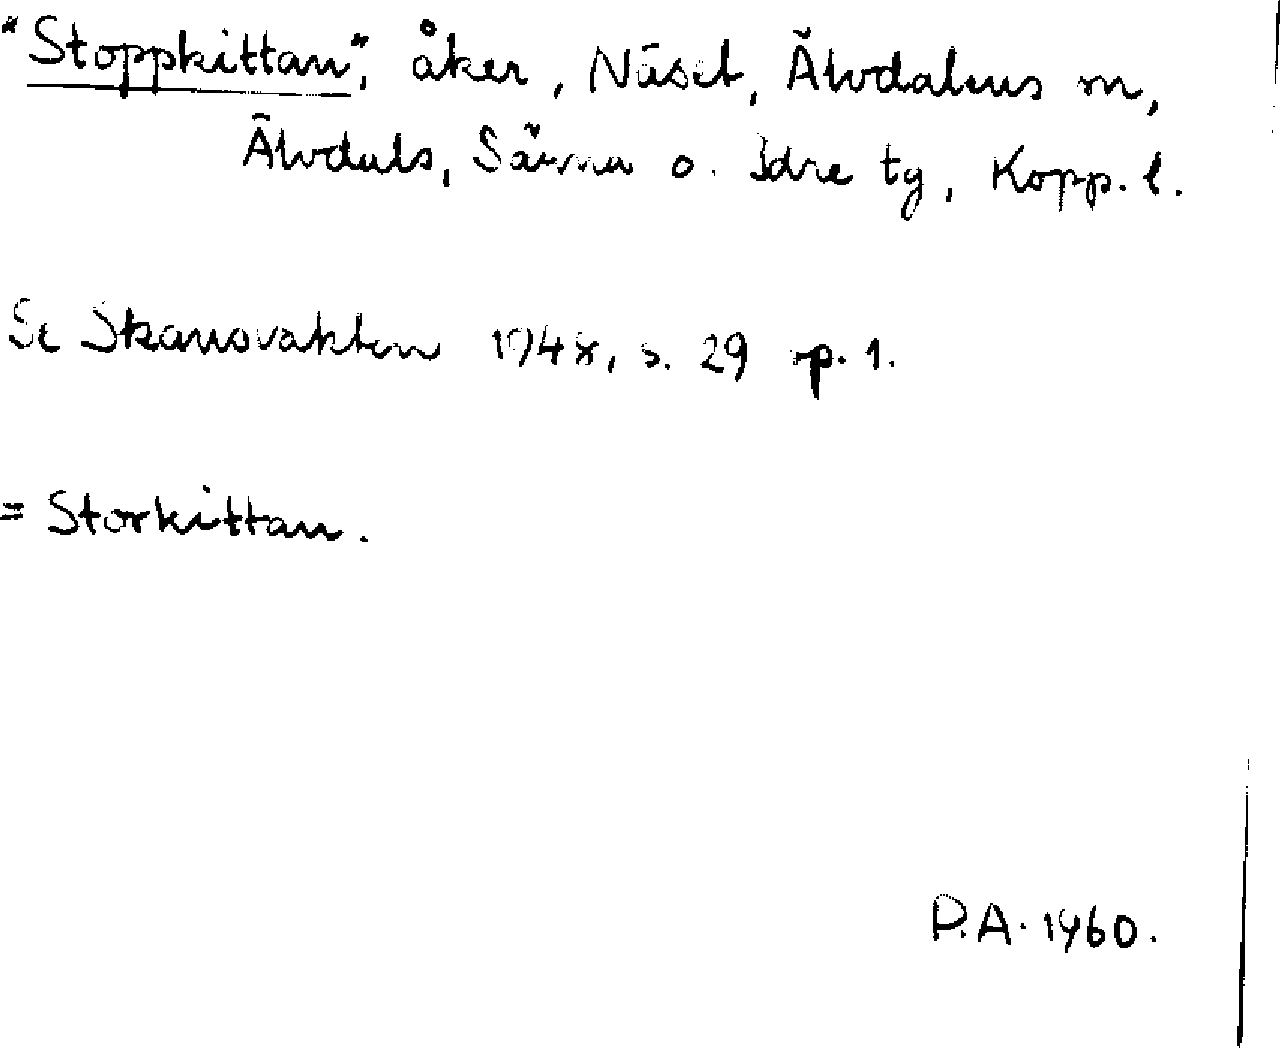 "Stoppkittan", åker, Näset, Älvdalens sn,
Älvdals, Särna o. Idre tg, Kopp. l.
Se Skansvakten 1948, s. 29 sp. 1.
= Storkittan.
P.A. 1960.